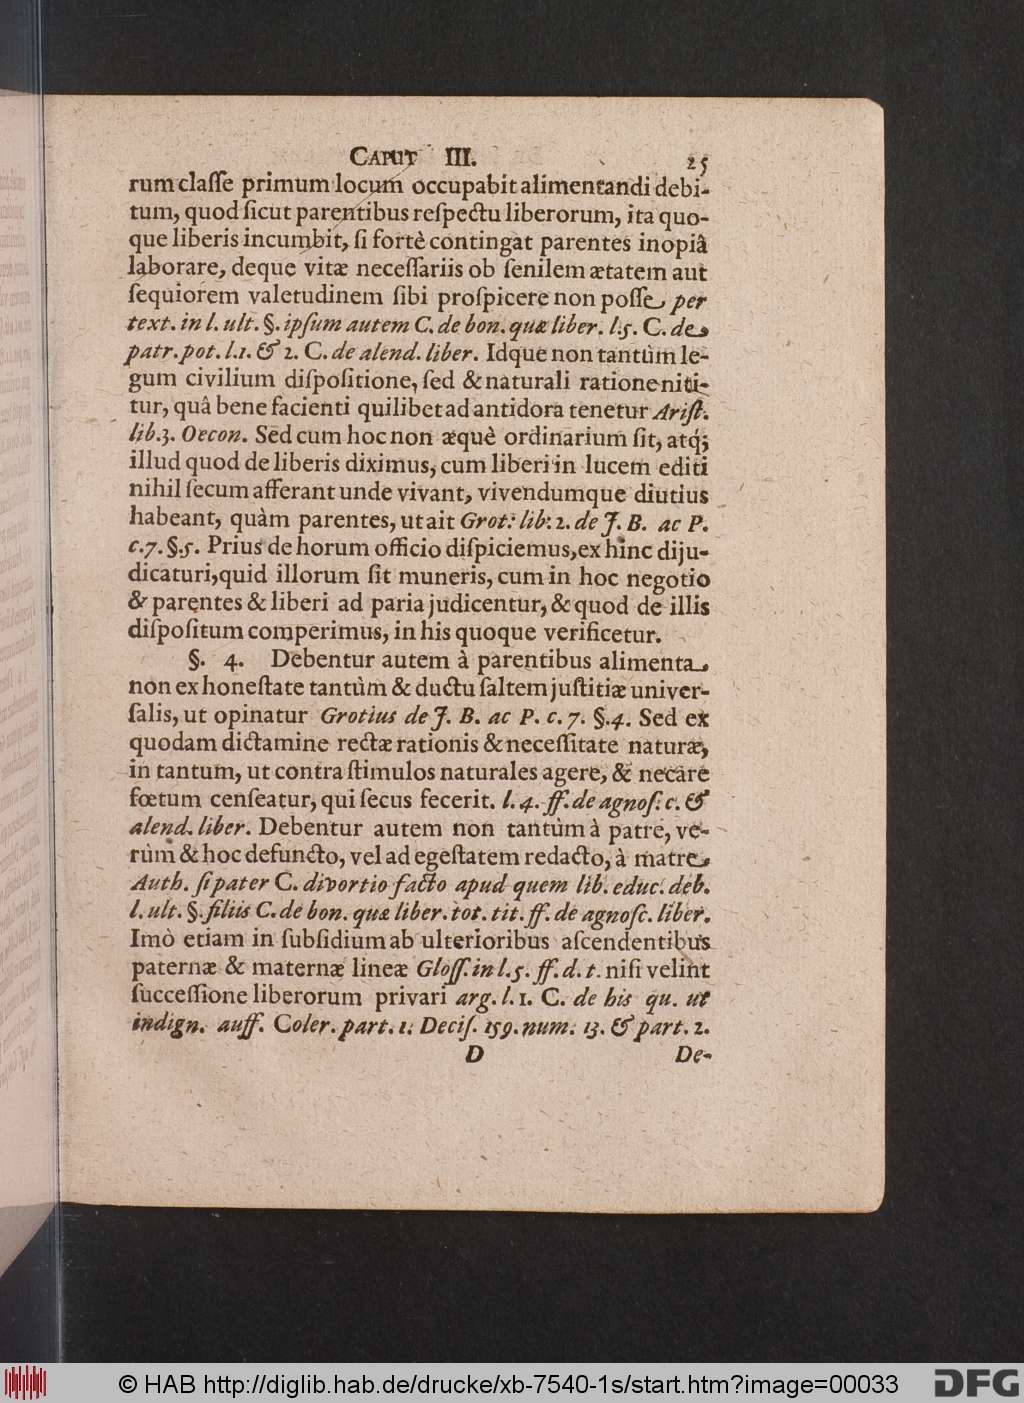 CAPUT III. 25
rum claſſe primum locum occupabit alimentandi debi-
tum, quod ſicut parentibus reſpectu liberorum, ita quo-
que liberis incumbit, ſi fortè contingat parentes inopiâ
laborare, deque vitæ neceſſariis ob ſenilem ætatem aut
ſequiorem valetudinem ſibi proſpicere non poſſe per
text. in l. ult. §. ipſum autem C. de bon. quæ liber. l.5. C. de
patr. pot. l.1. & 2. C. de alend. liber. Idque non tantùm le-
gum civilium diſpoſitione, ſed & naturali ratione niti-
tur, quâ bene facienti quilibet ad antidora tenetur Ariſt.
lib.3. Oecon. Sed cum hoc non æquè ordinarium ſit, atq́;
illud quod de liberis diximus, cum liberi in lucem editi
nihil ſecum afferant unde vivant, vivendumque diutius
habeant, quàm parentes, ut ait Grot: lib: 2. de J. B. ac P.
c.7. §.5. Prius de horum officio diſpiciemus, ex hinc diju-
dicaturi, quid illorum ſit muneris, cum in hoc negotio
& parentes & liberi ad paria judicentur, & quod de illis
diſpoſitum comperimus, in his quoque verificetur.
§. 4. Debentur autem à parentibus alimenta
non ex honeſtate tantùm & ductu ſaltem juſtitiæ univer-
ſalis, ut opinatur Grotius de J. B. ac P. c. 7. §.4. Sed ex
quodam dictamine rectæ rationis & neceſſitate naturæ,
in tantum, ut contra ſtimulos naturales agere, & necare
fœtum cenſeatur, qui ſecus fecerit. l. 4. ff. de agnoſ. c. &
alend. liber. Debentur autem non tantùm à patre, ve-
rùm & hoc defuncto, vel ad egeſtatem redacto, à matre
Auth. ſi pater C. divortio facto apud quem lib. educ. deb.
l. ult. §. filiis C. de bon. quæ liber. tot. tit. ff. de agnoſc. liber.
Imò etiam in ſubſidium ab ulterioribus aſcendentibus
paternæ & maternæ lineæ Gloſſ. in l. 5. ff. d. t. niſi velint
ſucceſſione liberorum privari arg. l. 1. C. de his qu. ut
indign. auff. Coler. part. 1. Deciſ. 159. num. 13. & part. 2.
D De-
© HAB http://diglib.hab.de/drucke/xb-7540-1s/start.htm?image=00033 DFG